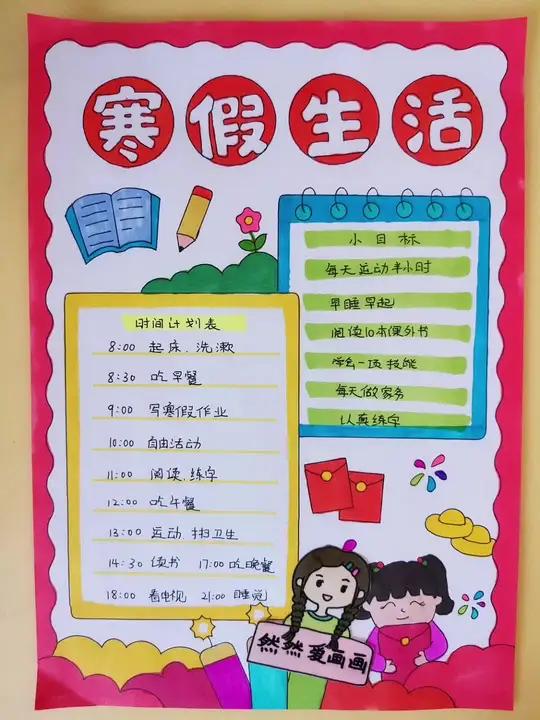 寒假生活
小目标
每天运动半小时
早睡早起
阅读10本课外书
学会一项技能
每天做家务
认真练字
时间计划表
8:00 起床、洗漱
8:30 吃早餐
9:00 写寒假作业
10:00 自由活动
11:00 阅读、练字
12:00 吃午餐
13:00 运动、扫卫生
14:30 读书 17:00 吃晚餐
18:00 看电视 21:00 睡觉
然然爱画画